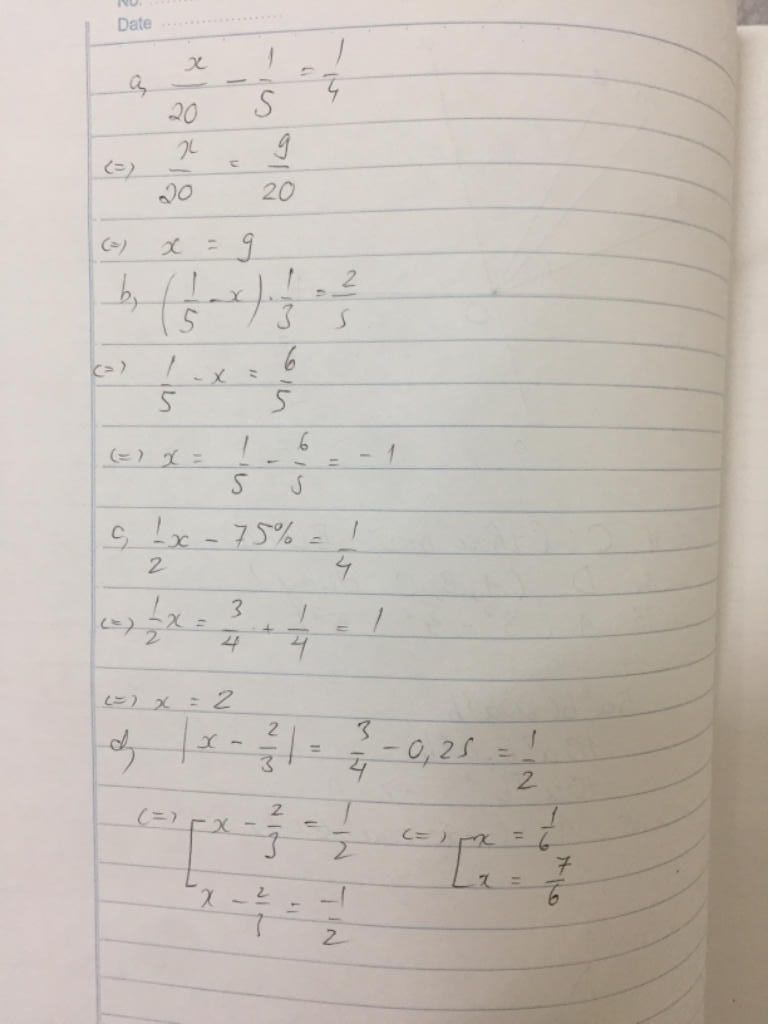 No.
Date
a, x/20 - 1/5 = 1/4
(=) x/20 = 9/20
(=) x = 9
b, (1/5 - x) . 1/3 = 2/5
(=) 1/5 - x = 6/5
(=) x = 1/5 - 6/5 = -1
c, 1/2 x - 75% = 1/4
(=) 1/2 x = 3/4 + 1/4 = 1
(=) x = 2
d, |x - 2/3| = 3/4 - 0,25 = 1/2
(=) [ x - 2/3 = 1/2 (=) [ x = 1/6
x - 2/3 = -1/2 x = 7/6